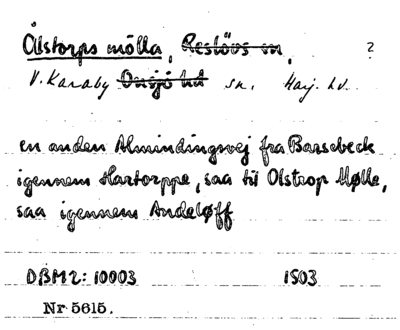 Ålstorps mölla, Reslövs sn, ?
V. Karaby Onsjö hd sn. Harj. hd.
en anden Almindingsvej fra Barsebeck
igennem Hartorppe, saa til Olstrop Mølle,
saa igennem Andeløff
DBM2: 10003 1503
Nr 5615.